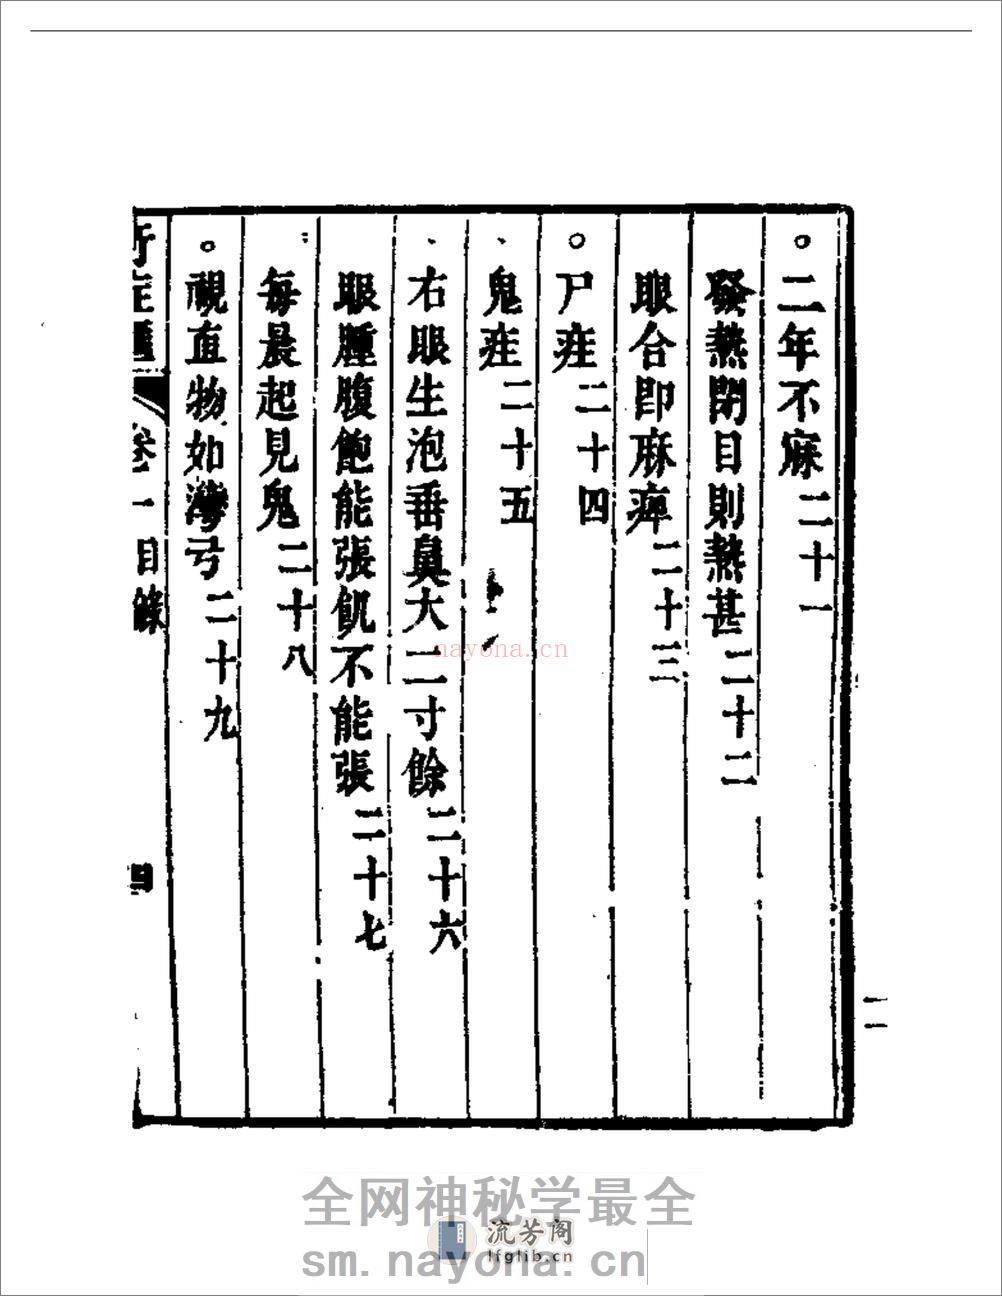 二年不寐二十一
發熱閉目則熱甚二十二
眼合即麻痺二十三
尸疰二十四
鬼疰二十五
右眼生泡垂鼻大二寸餘二十六
眼腫腹飽能張飢不能張二十七
每晨起見鬼二十八
視直物如灣弓二十九
卷一目錄
四
二
nayona.cn
全网神秘学最全
流芳阁
lfglib.cn
sm.nayona.cn